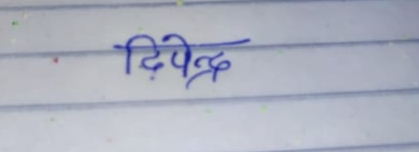 दिपेन्द्र